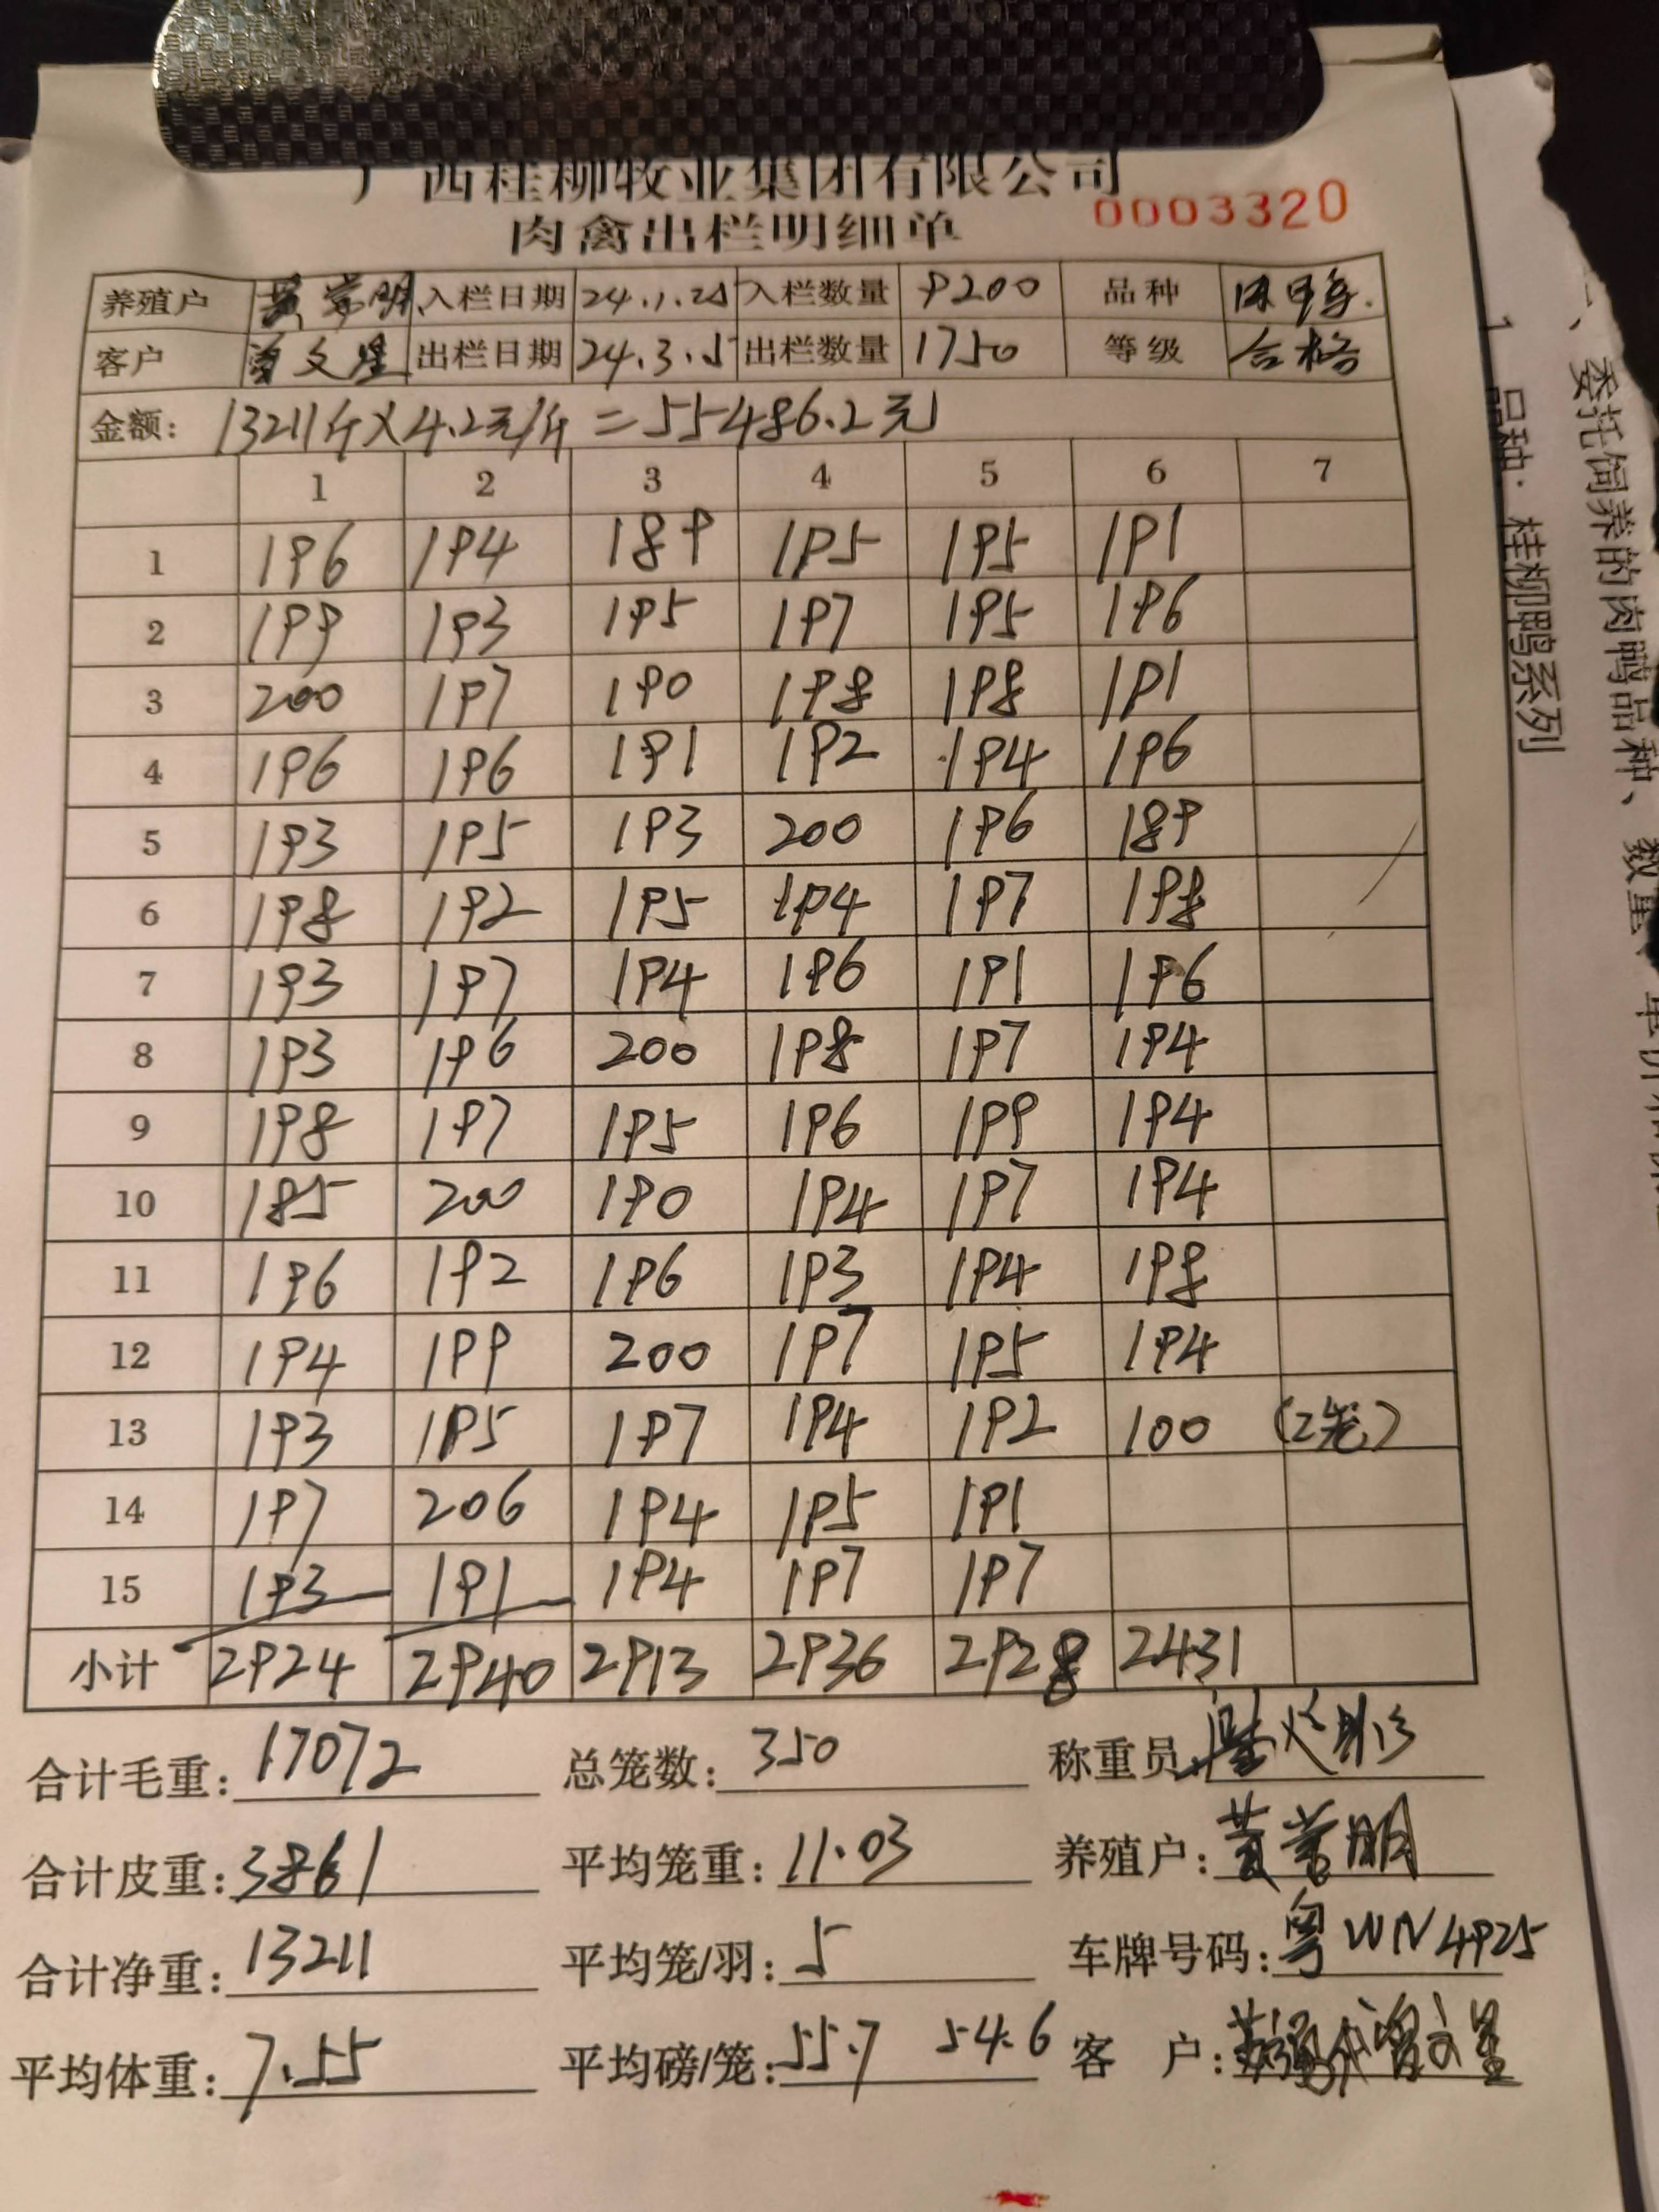 广西桂柳牧业集团有限公司
肉禽出栏明细单 0003320
养殖户 黄常明 入栏日期 24.1.20 入栏数量 9200 品种
客户 曾文星 出栏日期 24.3.5 出栏数量 1750 等级 合格
金额: 13211斤×4.2元/斤=55486.2元
1 2 3 4 5 6 7
1 196 194 189 195 195 191
2 199 193 195 197 195 196
3 200 197 190 198 198 191
4 196 196 191 192 194 196
5 193 195 193 200 196 189
6 198 192 195 194 197 198
7 193 197 194 196 191 196
8 193 196 200 198 197 194
9 198 197 195 196 199 194
10 185 200 190 194 197 194
11 196 192 196 193 194 198
12 194 199 200 197 195 194
13 193 195 197 194 192 100 (2笼)
14 197 206 194 195 191
15 193 191 194 197 197
小计 2924 2940 2913 2936 2928 2431
合计毛重: 17072 总笼数: 350 称重员:
合计皮重: 3861 平均笼重: 11.03 养殖户: 黄常明
合计净重: 13211 平均笼/羽: 5 车牌号码: 粤WN4925
平均体重: 7.55 平均磅/笼: 55.7 54.6 客户:
一、委托饲养的肉鸭品种、数量、单价
1 品种: 桂柳鸭系列